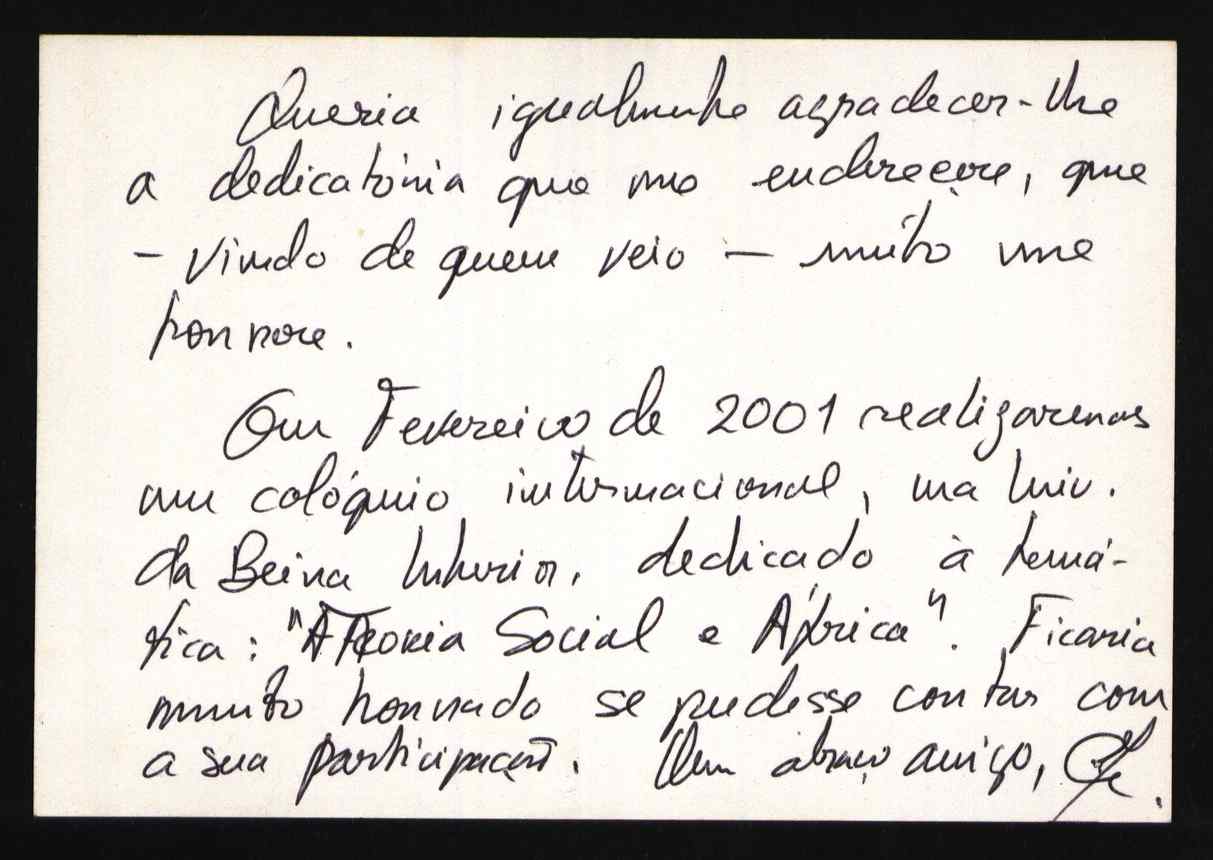 Queria igualmente agradecer-lhe
a dedicatória que me endereçou, que
– vindo de quem veio – muito me
honrou.
Em Fevereiro de 2001 realizaremos
um colóquio internacional, na Univ.
da Beira Interior, dedicado à temá-
tica: "A Teoria Social e África". Ficaria
muito honrado se pudesse contar com
a sua participação. Um abraço amigo,